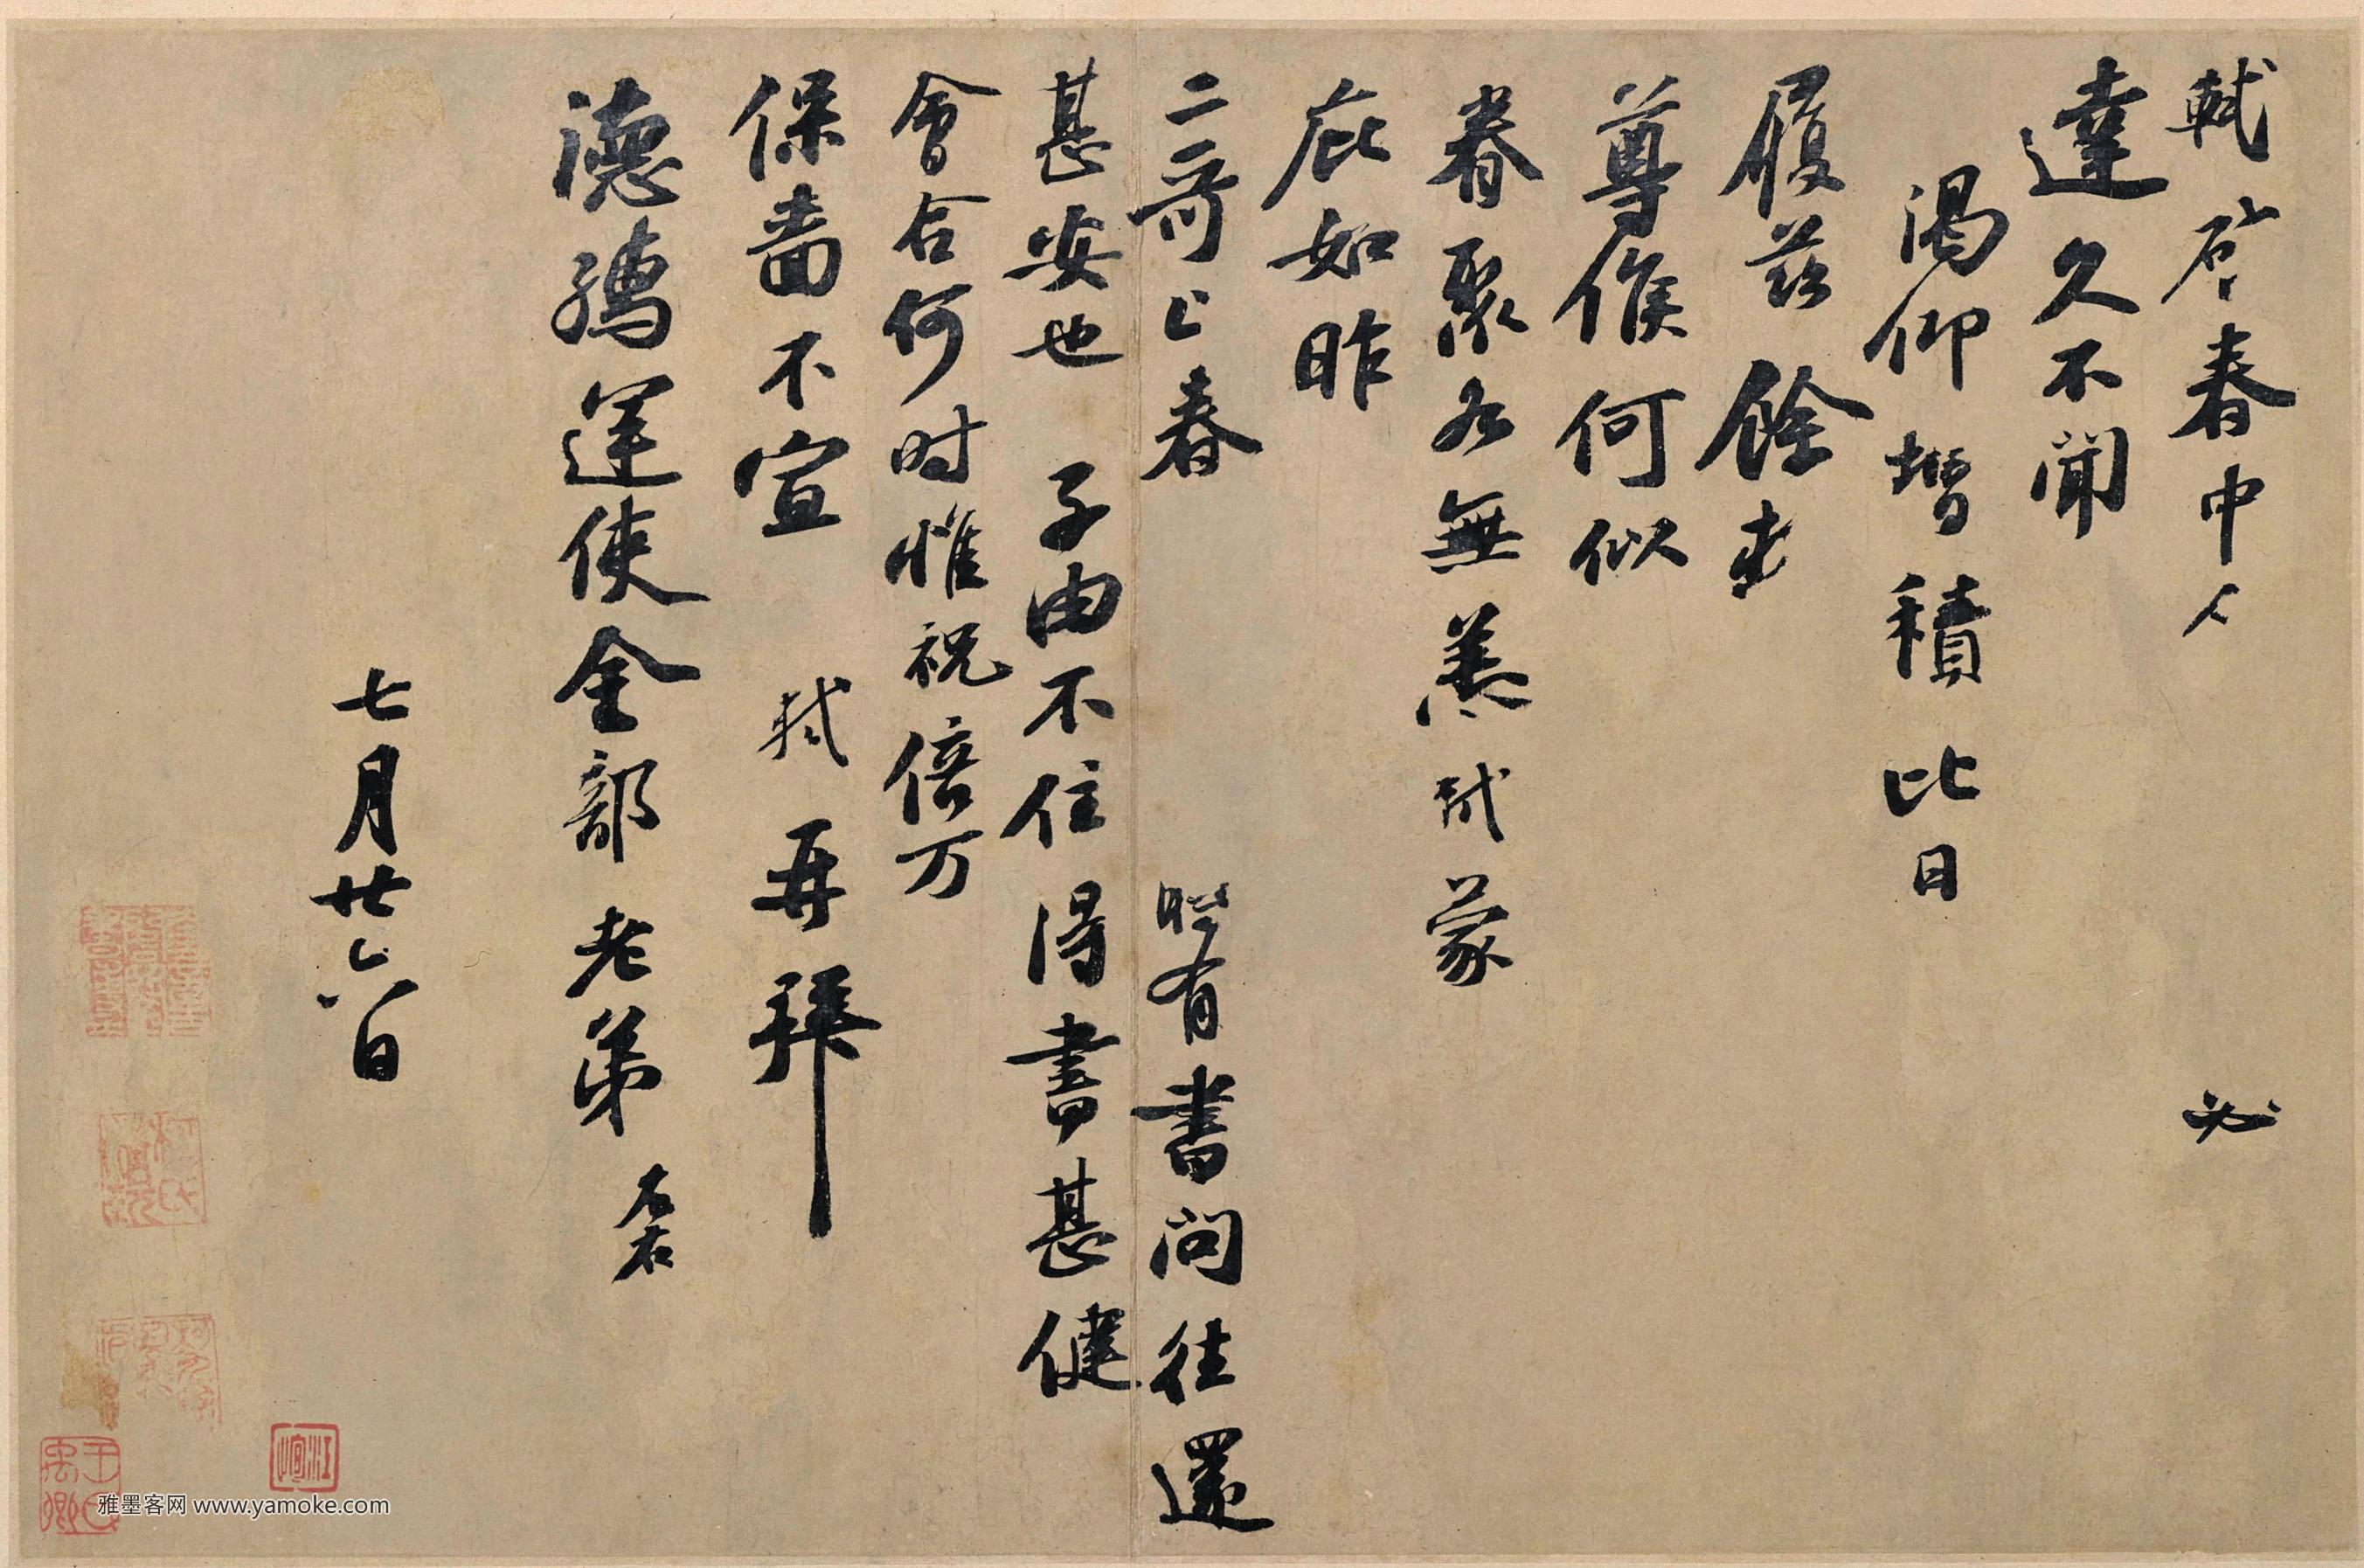 軾啓春中 必
達久不聞
渴仰增積比日
履茲餘
尊候何似
眷聚各無恙軾蒙
庇如昨
二哥上春 時有書問往還
甚安也子由不住得書甚健
會合何時惟祝倍万
保嗇不宣 軾再拜
德孺運使金部老弟 左右
七月廿六日
雅墨客网 www.yamoke.com